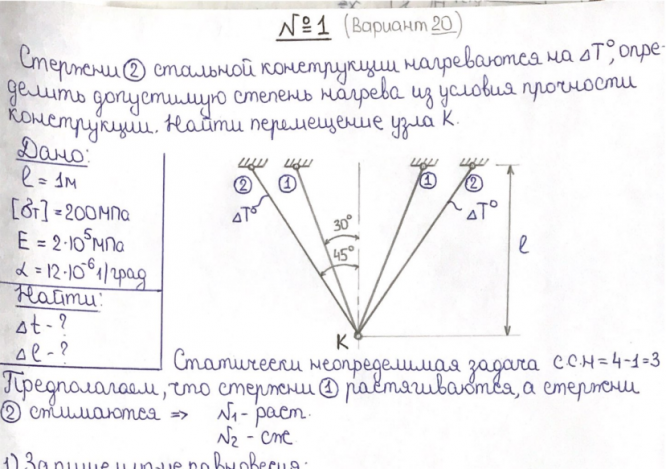 №1 (Вариант 20)
Стержни ② стальной конструкции нагреваются на ΔT°, опре-
делить допустимую степень нагрева из условия прочности
конструкции. Найти перемещение узла К.
Дано:
l = 1м
[σт] = 200МПа
E = 2·10⁵МПа
α = 12·10⁻⁶ 1/град
Найти:
Δt - ?
Δl - ?
② ① ① ②
ΔT° ΔT°
30°
45°
l
К
Статически неопределимая задача С.С.Н = 4-1=3
Предполагаем, что стержни ① растягиваются, а стержни
② стимаются => N₁ - раст.
N₂ - сж
1) Запишем